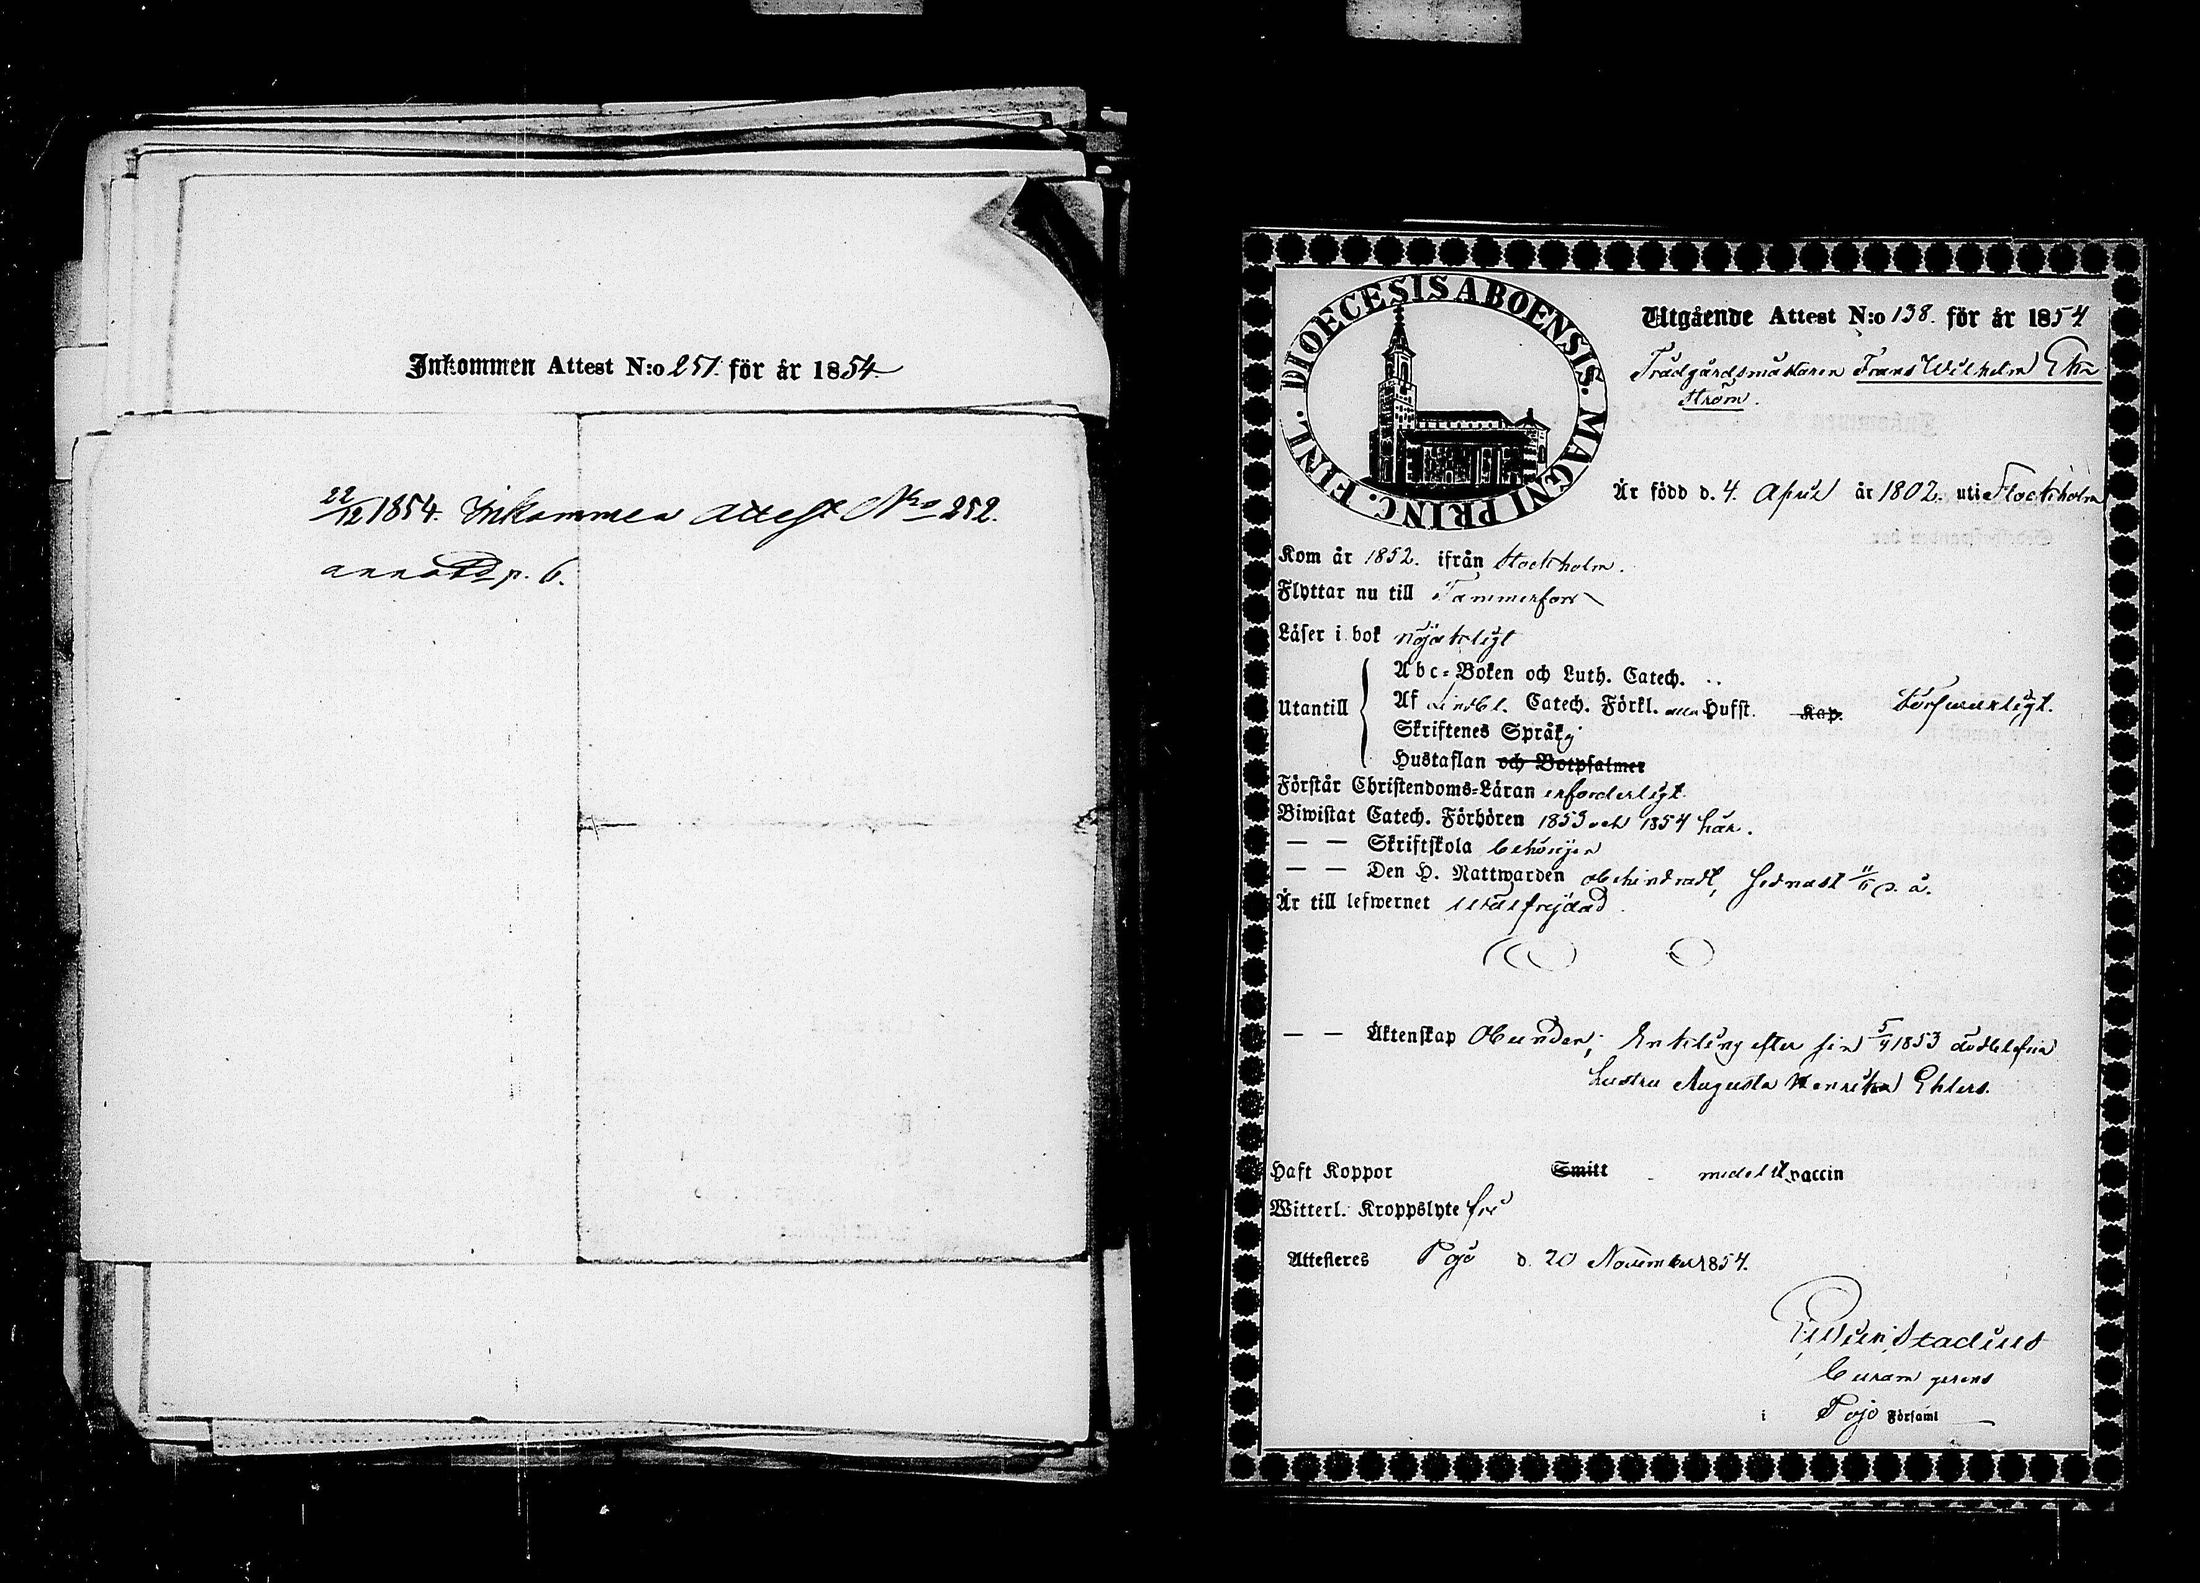 Inkommen Attest N:o 251. för år 1854.
22/12 1854. Inkommen Attest N:ro 252.
annoterad p. 6.
DIOECESIS ABOENSIS. MAGNI PRINC. FINL.
Utgående Attest N:o 138. för år 1854
Trädgårdsmästaren Frans Wilhelm Ek=
ström.
Är född d. 4. April år 1802. uti Stockholm
Kom år 1852. ifrån Stockholm.
Flyttar nu till Tammerfors
Läser i bok nöjaktligt
Utantill
Abc=Boken och Luth. Catech.
Af Lindbl. Catech. Förkl. alla Hufst. Kap. försvarligt.
Skriftenes Språk
Hustaflan och Botpsalmer
Förstår Christendoms=Läran erforderligt.
Biwistat Catech. Förhören 1853 och 1854 här.
— — Skriftskola behörigen
— — Den H. Nattwarden obehindradt, sednast 11/6 d. å.
Är till lefwernet väl frejdad.
— — Äktenskap Obunden; Enkling efter sin 5/4 1853 aflidna
hustru Augusta Henrika Ehlers.
Haft Koppor Smitt medelst vaccin
Witterl. Kroppslyte fri
Attesteres Pojo d. 20 November 1854.
Stadius
Curam gerens
i Pojo Församl